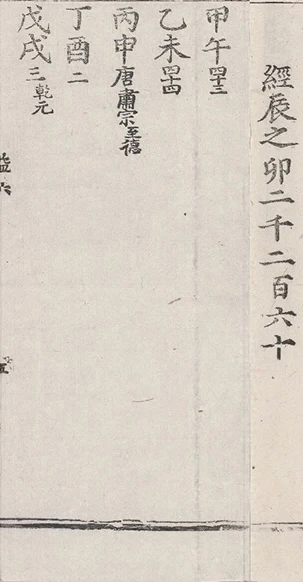 經辰之卯二千二百六十
甲午四十三
乙未四十四
丙申唐肅宗至德
丁酉二
戊戌三乾元